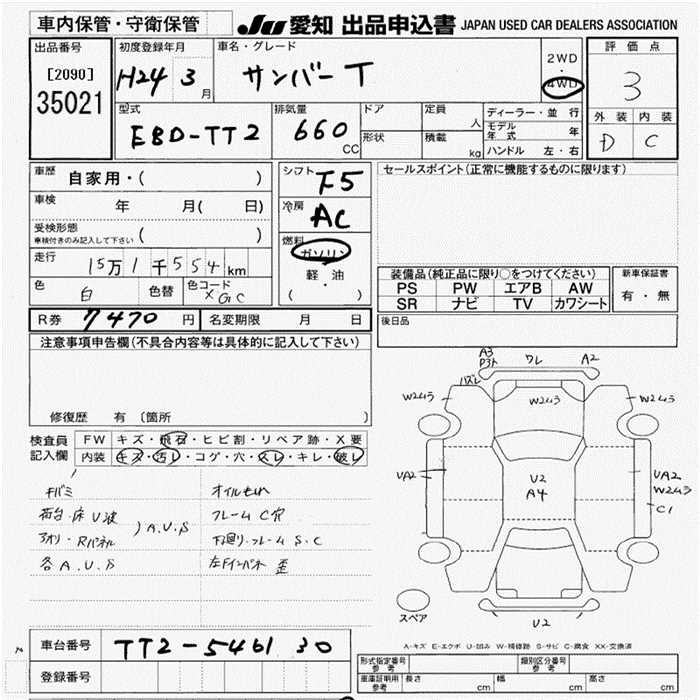 車内保管・守衛保管
JU 愛知 出品申込書 JAPAN USED CAR DEALERS ASSOCIATION
出品番号
[2090]
35021
初度登録年月
H24 3 月
車名・グレード
サンバー T
2WD
・
4WD
評価点
3
外装 内装
D C
型式
EBD-TT2
排気量
660 CC
ドア
形状
定員 人
積載 kg
ディーラー・並行
モデル年式 年
ハンドル 左・右
車歴 自家用・( )
車検 年 月( 日)
受検形態
車検付きのみ記入して下さい ( )
走行 15万1千554km
色 白 色替 色コード
シフト F5
冷房 AC
燃料
ガソリン
軽・油
( ・ )
セールスポイント(正常に機能するものに限ります)
装備品(純正品に限り○をつけてください)
PS PW エアB AW
SR ナビ TV カワシート
新車保証書
有・無
後日品
R券 7470 円 名変期限 月 日
注意事項申告欄(不具合内容等は具体的に記入して下さい)
修復歴 有 〔箇所 〕
検査員
記入欄
FW キズ・飛石・ヒビ割・リペア跡・X要
内装 キズ・汚レ・コゲ・穴・スレ・キレ・破レ
キバミ オイルもれ
荷台・床U波 )A.U.S フレームC穴
アオリ・Rパネル 下廻り・フレームS.C
各A.U.S 左Fインパネ 歪
A3 ワレ A2
ハズレ
W2ムラ W2ムラ W2ムラ
UA2 U2 UA2
A4 W2ムラ
C1
スペア
U2
A-キズ E-エクボ U-凹み W-補修跡 S-サビ C-腐食 XX-交換済
車台番号 TT2-5461 30
登録番号
形式指定番号
参考
類別区分番号
参考
車庫証明用
参考
長さ cm 幅 cm 高さ cm